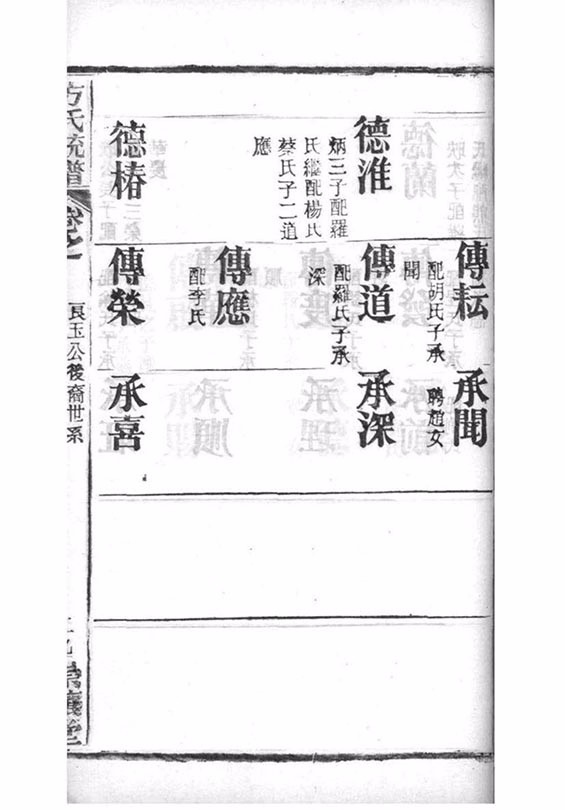 傳耘
配胡氏子承
聞
承聞
聘趙女
德淮
炳三子配羅
氏繼配楊氏
蔡氏子二道
應
傳道
配羅氏子承
深
承深
傳應
配李氏
德椿
傳榮
承喜
方氏統譜
良玉公後裔世系